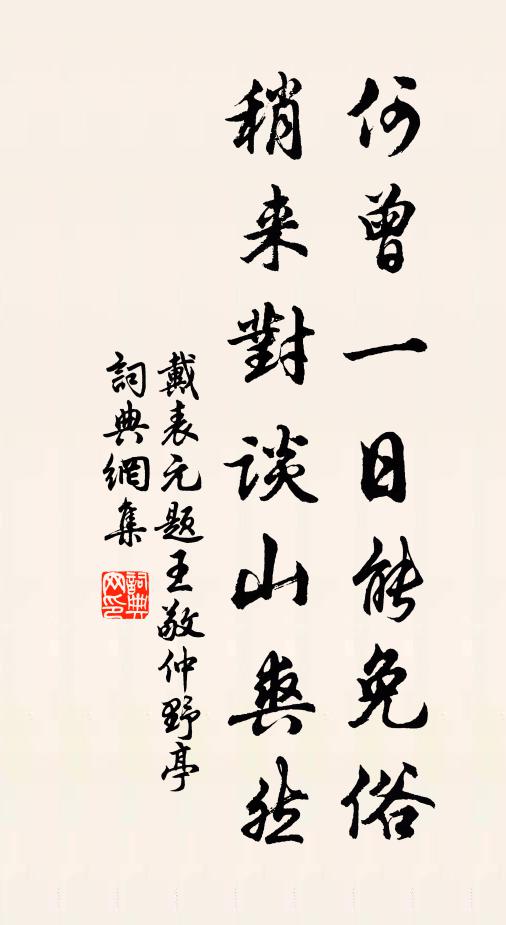 何曾一日能免俗
稍来對談山爽然
戴表元题王敬仲野亭
詞典網集
詞典网印